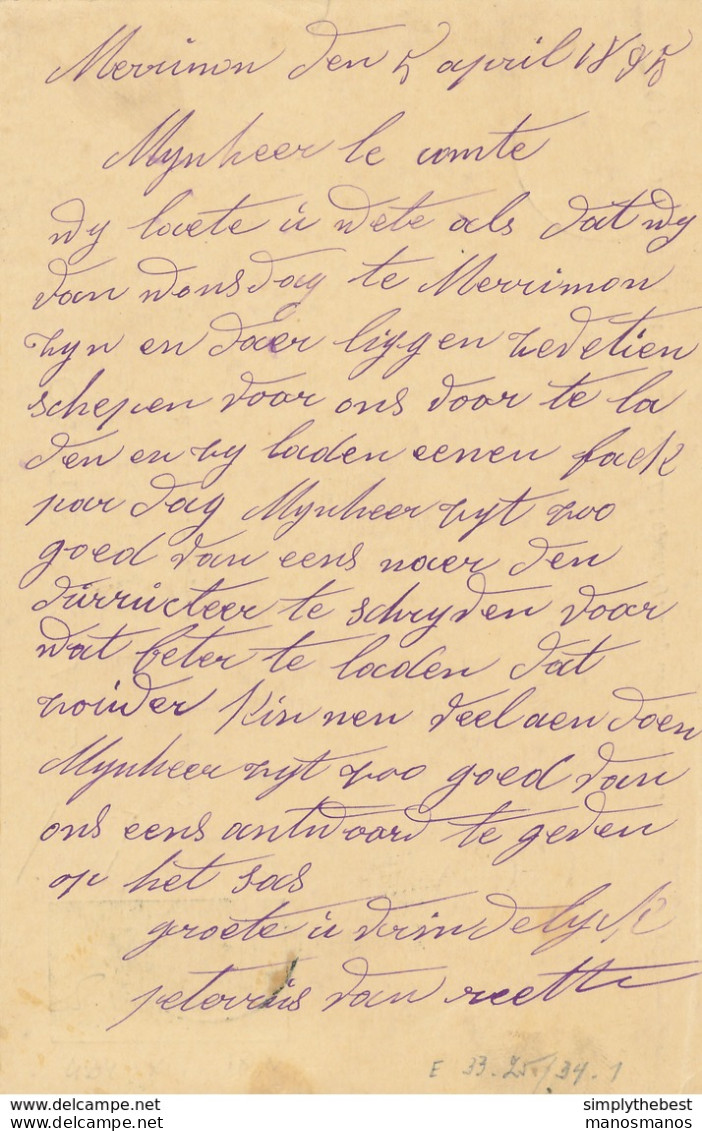 Merrimon den 5 april 1895
Mynheer le comte
wy laete u wete als dat wy
van wonsdag te Merrimon
zyn en daer liggen zevetien
schepen voor ons door te la
den en zy laden eenen fack
par dag Mynheer zyt zoo
goed van eens naer den
durructeer te schryven voor
wat beter te laden dat
zouder kinnen veel aen doen
Mynheer zyt zoo goed van
ons eens antwoord te geven
op het sas
groete u vrindelyck
peterrus van reeth
E 33.25/34.1
simplythebest
manosmanos